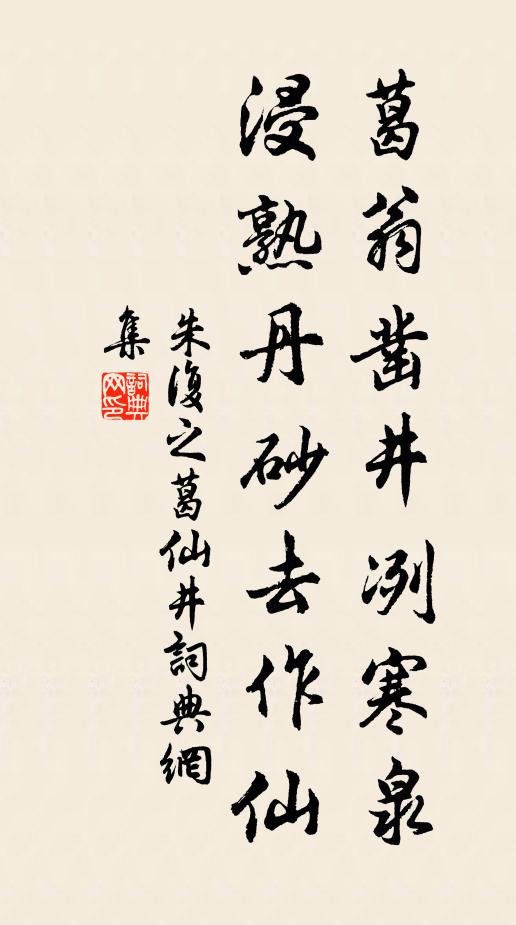 葛翁凿井冽寒泉
浸熟丹砂去作仙
朱復之葛仙井詞典網
集
詞典网印